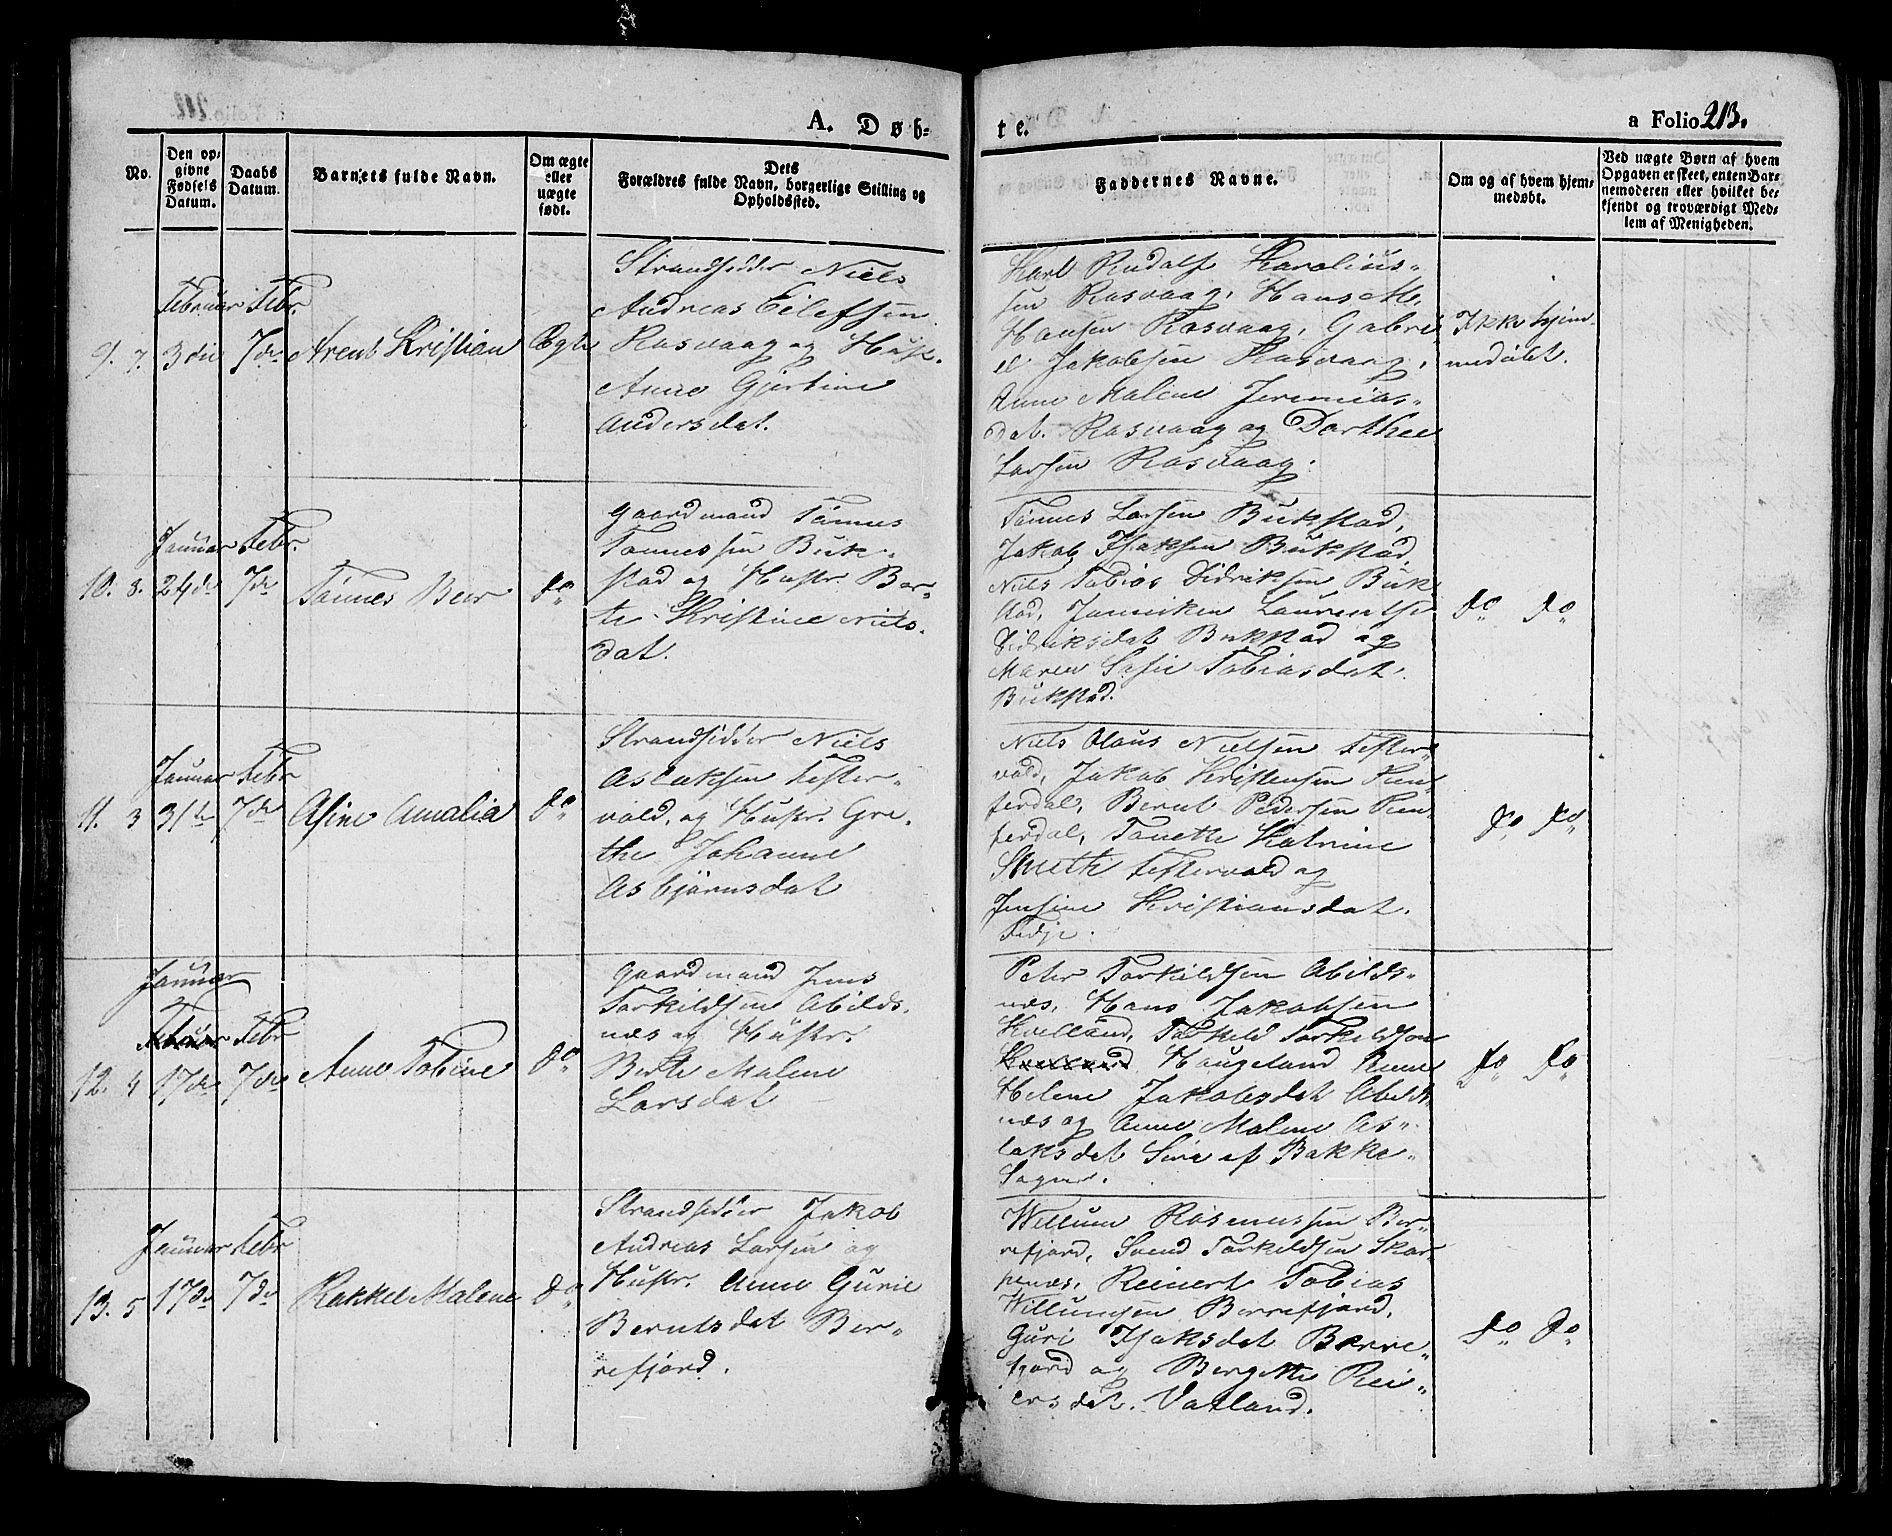 A. Døb-
te.
a Folio 213.
No.
Den op-
givne
Fødsels
Datum.
Daabs
Datum.
Barnets fulde Navn.
Om ægte
eller
uægte
født.
Dets
Forældres fulde Navn, borgerlige Stilling og
Opholdssted.
Faddernes Navne.
Om og af hvem hjem-
medøbt.
Ved uægte Børn af hvem
Opgaven er skeet, enten Bar-
nemoderen eller hvilket be-
kjendt og troværdigt Med-
lem af Menigheden.
9. 7.
Februar
3die
Febr.
7de
Arent Kristian
Ægte
Strandsidder Niels
Andreas Eilefsen
Rasvaag og Hustr.
Anne Gjertine
Andersdat.
Karl Rudolf Karolius-
sen Rasvaag, Hans M.
Hansen Rasvaag, Gabri
el Jakobsen Rasvaag,
Anne Malene Jeremias-
dat. Rasvaag og Dorthea
Larsen Rasvaag.
Ikke hjem-
medøbt.
10. 8.
Januar
24de
Febr.
7de
Tønnes Beer
do
Gaardmand Tønnes
Tønnessen Buk-
stad og Hustr. Ber-
te Kristine Niels-
dat.
Tønnes Larsen Bukstad,
Jakob Isaksen Bukstad,
Niels Tobias Didriksen Buk-
stad, Janniken Laurentse
Didriksdat Bukstad og
Maren Sofie Tobiasdat.
Bukstad.
do do
11. 3
Januar
31te
Febr
7de
Asine Amalia
do
Strandsidder Niels
Aslaksen Tester-
vald, og Hustr. Gre-
the Johanne
Asbjørnsdat
Niels Olaus Nielsen Tester-
vald, Jakob Kristensen
Berut Pedersen
Tonette Katrine
Smeth Testervald og
Jensine Kristiansdat.
Fedje.
do do
12. 4
Januar
Februar
17de
Febr
7de
Anne Tobine
do
Gaardmand Jens
Torkildsen Abilds-
næs og Hustr.
Berte Malene
Larsdat
Peter Torkildsen Abilds-
næs, Hans Jakobsen
Kvelland, Torkild Torkildsen
Haugeland Anne
Helene Jakobsdat Abilds-
næs og Anne Malene As-
laksdat Sire af Bakke
Sogn.
do do
13. 5
Januar
17de
Febr
7de
Rakkel Malene
do
Strandsidder Jakob
Andreas Larsen og
Hustr. Anne Gurie
Berntsdat Ber-
refjord.
Willum Rasmussen Ber-
refjord, Svend Torkildsen Skar-
penæs, Reinert Tobias
Willumsen Berrefjord,
Guri Isaksdat Berre-
fjord og Bergitte Rei-
ersdat. Vatland.
do do